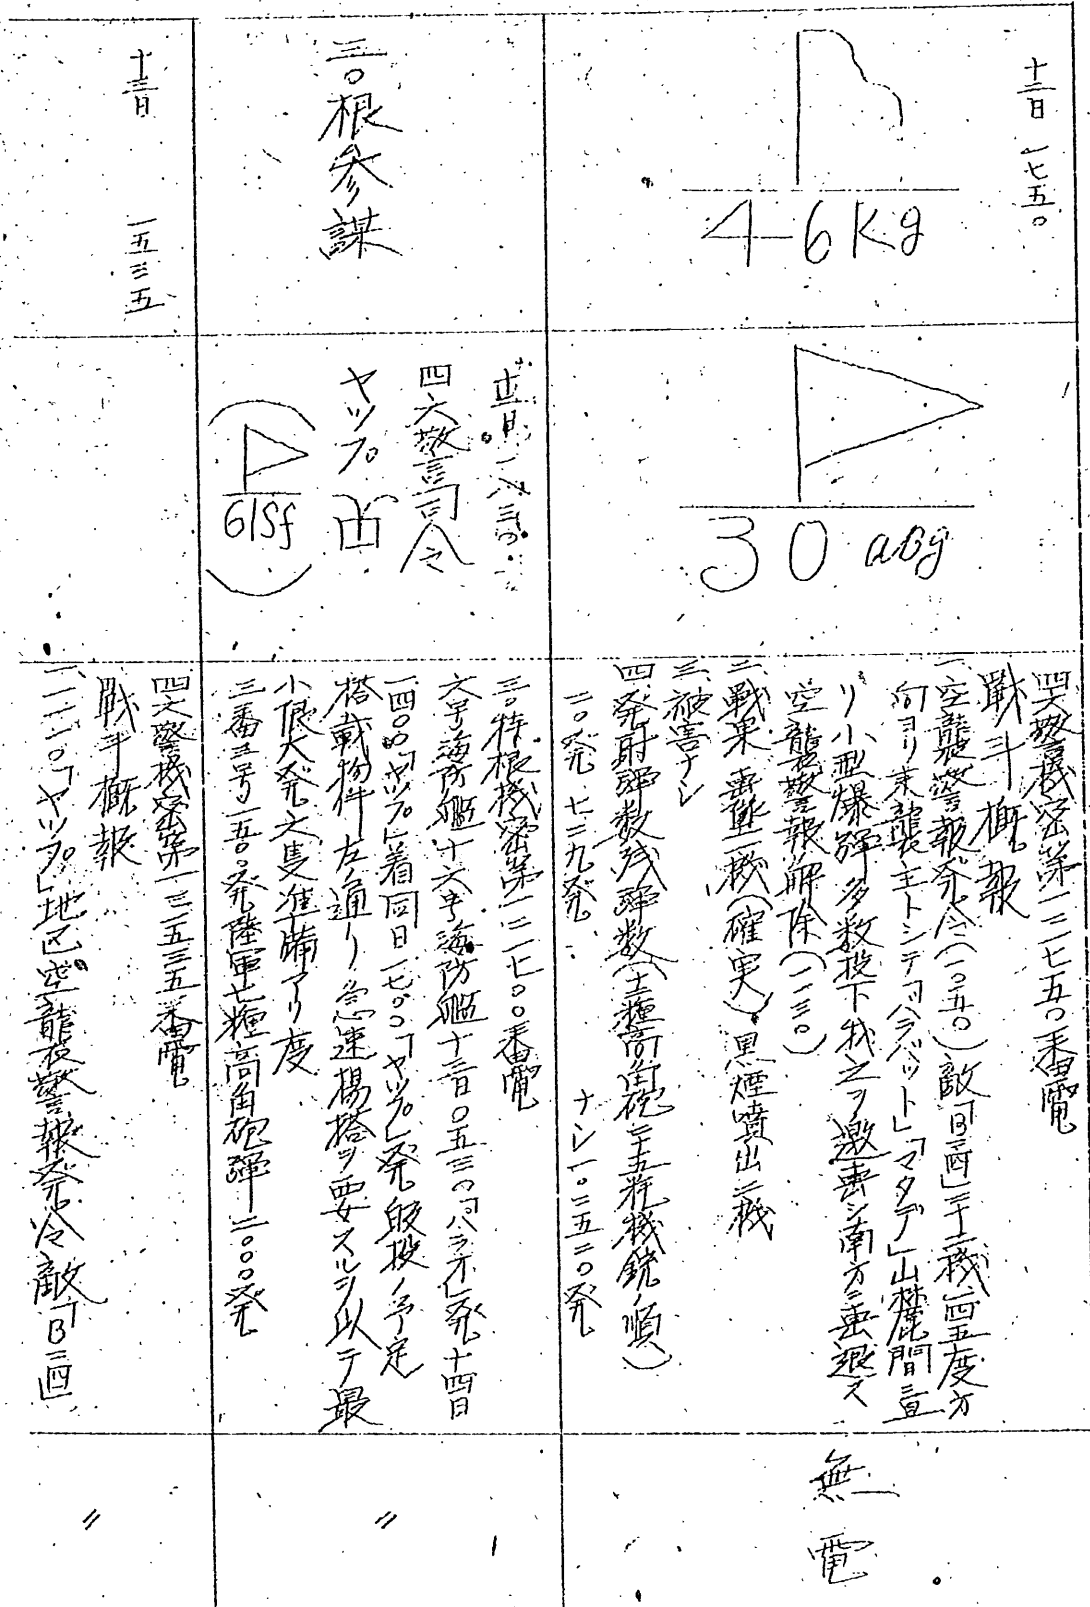 十二日 一七五〇
46Kg
30abg
四六警機密第一二一七五〇番電
戦斗概報
一、空襲警報発令(一〇五〇)敵「B二四」二十二機一四五度方
向ヨリ来襲主トシテ「ハラバット」「マタデ」山麓間ニ亘
リ小型爆弾多数投下我之ヲ邀撃シ南方ニ撃退ス
空襲警報解除(一一三〇)
二、戦果 撃墜一機(確実)黒煙噴出二機
三、被害ナシ
四、発射弾数残弾数(十二糎高角砲二十五粍機銃ノ順)
二〇発 七二九発 ナシ 一〇二五二〇発
無電
三〇根参謀
一八三〇
四六警司令
ヤップ
61Sf
三〇特根機密第一二一七〇〇番電
六号海防艦十六号海防艦十三日〇五三〇「パラオ」発十四日
一四〇〇「ヤップ」着同日一七〇〇「ヤップ」発 ノ予定
搭載物件左ノ通リ急速揚搭ヲ要スルヲ以テ最
小限大発六隻準備アリ度
三番三号一五〇発陸軍七糎高角砲弾二〇〇〇発
〃
十三日 一五三五
四六警機密第一三一五三五番電
戦斗概報
一、一一一〇「ヤップ」地区空襲警報発令敵「B二四」
〃